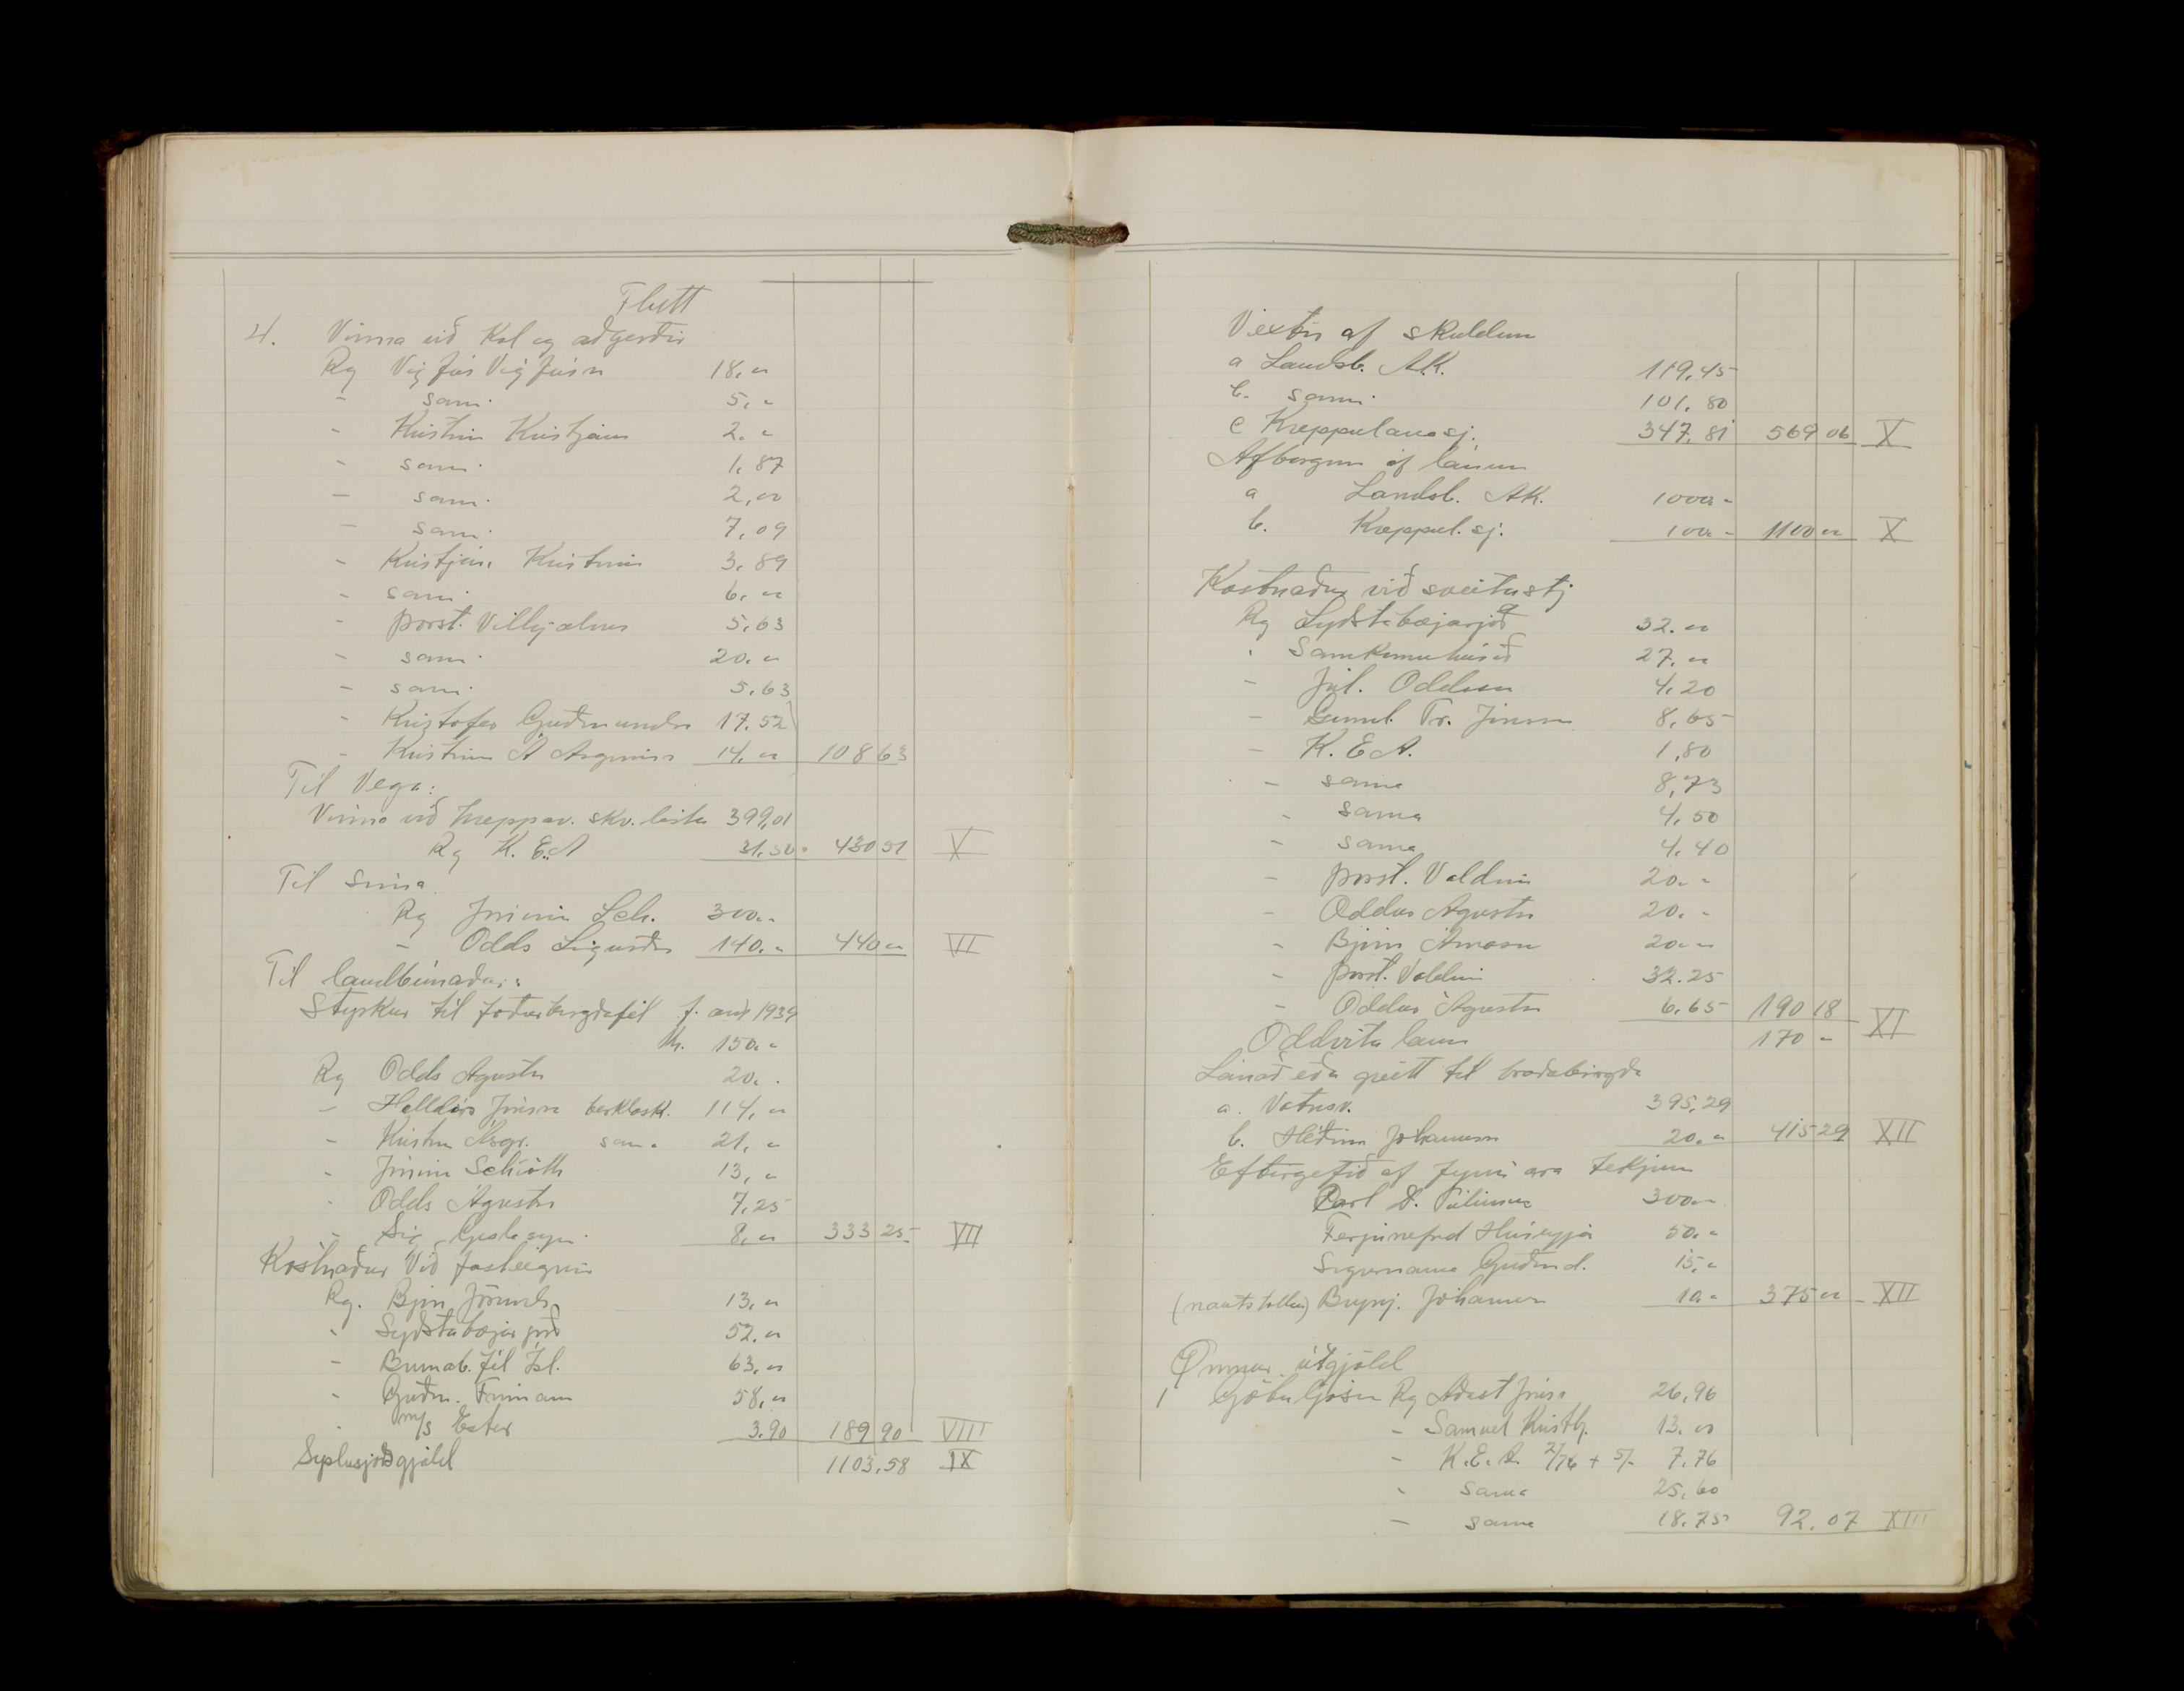 Flutt
4. Vinna við Kol og aðgerðir
Rg Vigfús Vigfúsn 18,00
- sami 5,-
- Kristinn Kristjáns 2.-
- sami 1,87
- sami 2,00
- sami 7,09
- Kristján Kristins 3,89
- sami 6,00
- Þorst. Vilhjálms 5,63
- sami 20.-
- sami 5,63
- Kristofer Guðmunds 17.52
- Kristinn Á Asgrímss 14,00 108 63
Til Vega:
Vinna við hreppav. skv. lista 399,01
Rg K.E.A 31.50 430 51 V
Til síma
Rg Jörunn Sch. 300.-
- Odds Sigurðss 140.- 440 00 VI
Til landbúnaðar:
Styrkur til fóðurbirgðafél f. árið 1939
kr. 150.-
Rg Odds Agústss 20.-
- Halldórs Jónssn berklask. 114,00
- Kristin Ásgr. sama 21,-
- Jörunn Schiöth 13,-
- Odds Ágústss 7,25
- Sig 8,00 333 25 VII
Kostnaður Við fasteignir
Rg. Björn Jörunds. 13,00
- Syðstabæjar 52,00
- Brunab.fél Ísl. 63,00
- Guðm. Frímann 58,00
- m/s Ester 3.90 189 90 VIII
Sýslusjóðsgjöld 1103,58 IX
Vextir af skuldum
a Landsb. AK. 119,45
b. sami 101.80
c Kreppulánasj. 347.81 569 06 X
Afborgun af lánum
a Landsb. AK. 1000 -
b. Kreppul.sj. 100 - 1100 00 X
Kostnaður við sveitastj
Rg Syðstabæjar 32.00
- Samkomuhúsið 27.00
- Júl. Oddsson 4,20
- Gunnl. Tr. Jónsson 8,65
- K.E.A. 1,80
- sama 8,73
- sama 4,50
- sama 4,40
- Þorst. Valdim 20.-
- Oddur Agústss 20.-
- Björn Arnason 20.-
- Þorst. Valdim 32.25
- Oddur Ágústss 6,65 190 18
Oddvita laun 170 - XI
Lánað eða greitt til bráðabirgða
a. Vatnsv. 395,29
b. Héðinn Jóhannsson 20.- 415 29 XII
Eftirgefið af fyrri ára tekjum
Carl D. Túliníus 300.-
Ferjunefnd Húseyja 50.-
Sigurnanna Guðmd. 15,-
(nautstollur) Brynj. Jóhannesn 10 - 375 00 XII
Önnur útgjöld
1 Götuljósin Rg Aðalst Jónss 26,96
- Samuel Kristbj. 13.00
- K.E.A. 2/76 + 5/- 7.76
- sama 25,60
- sama 18.75 92.07 XIII